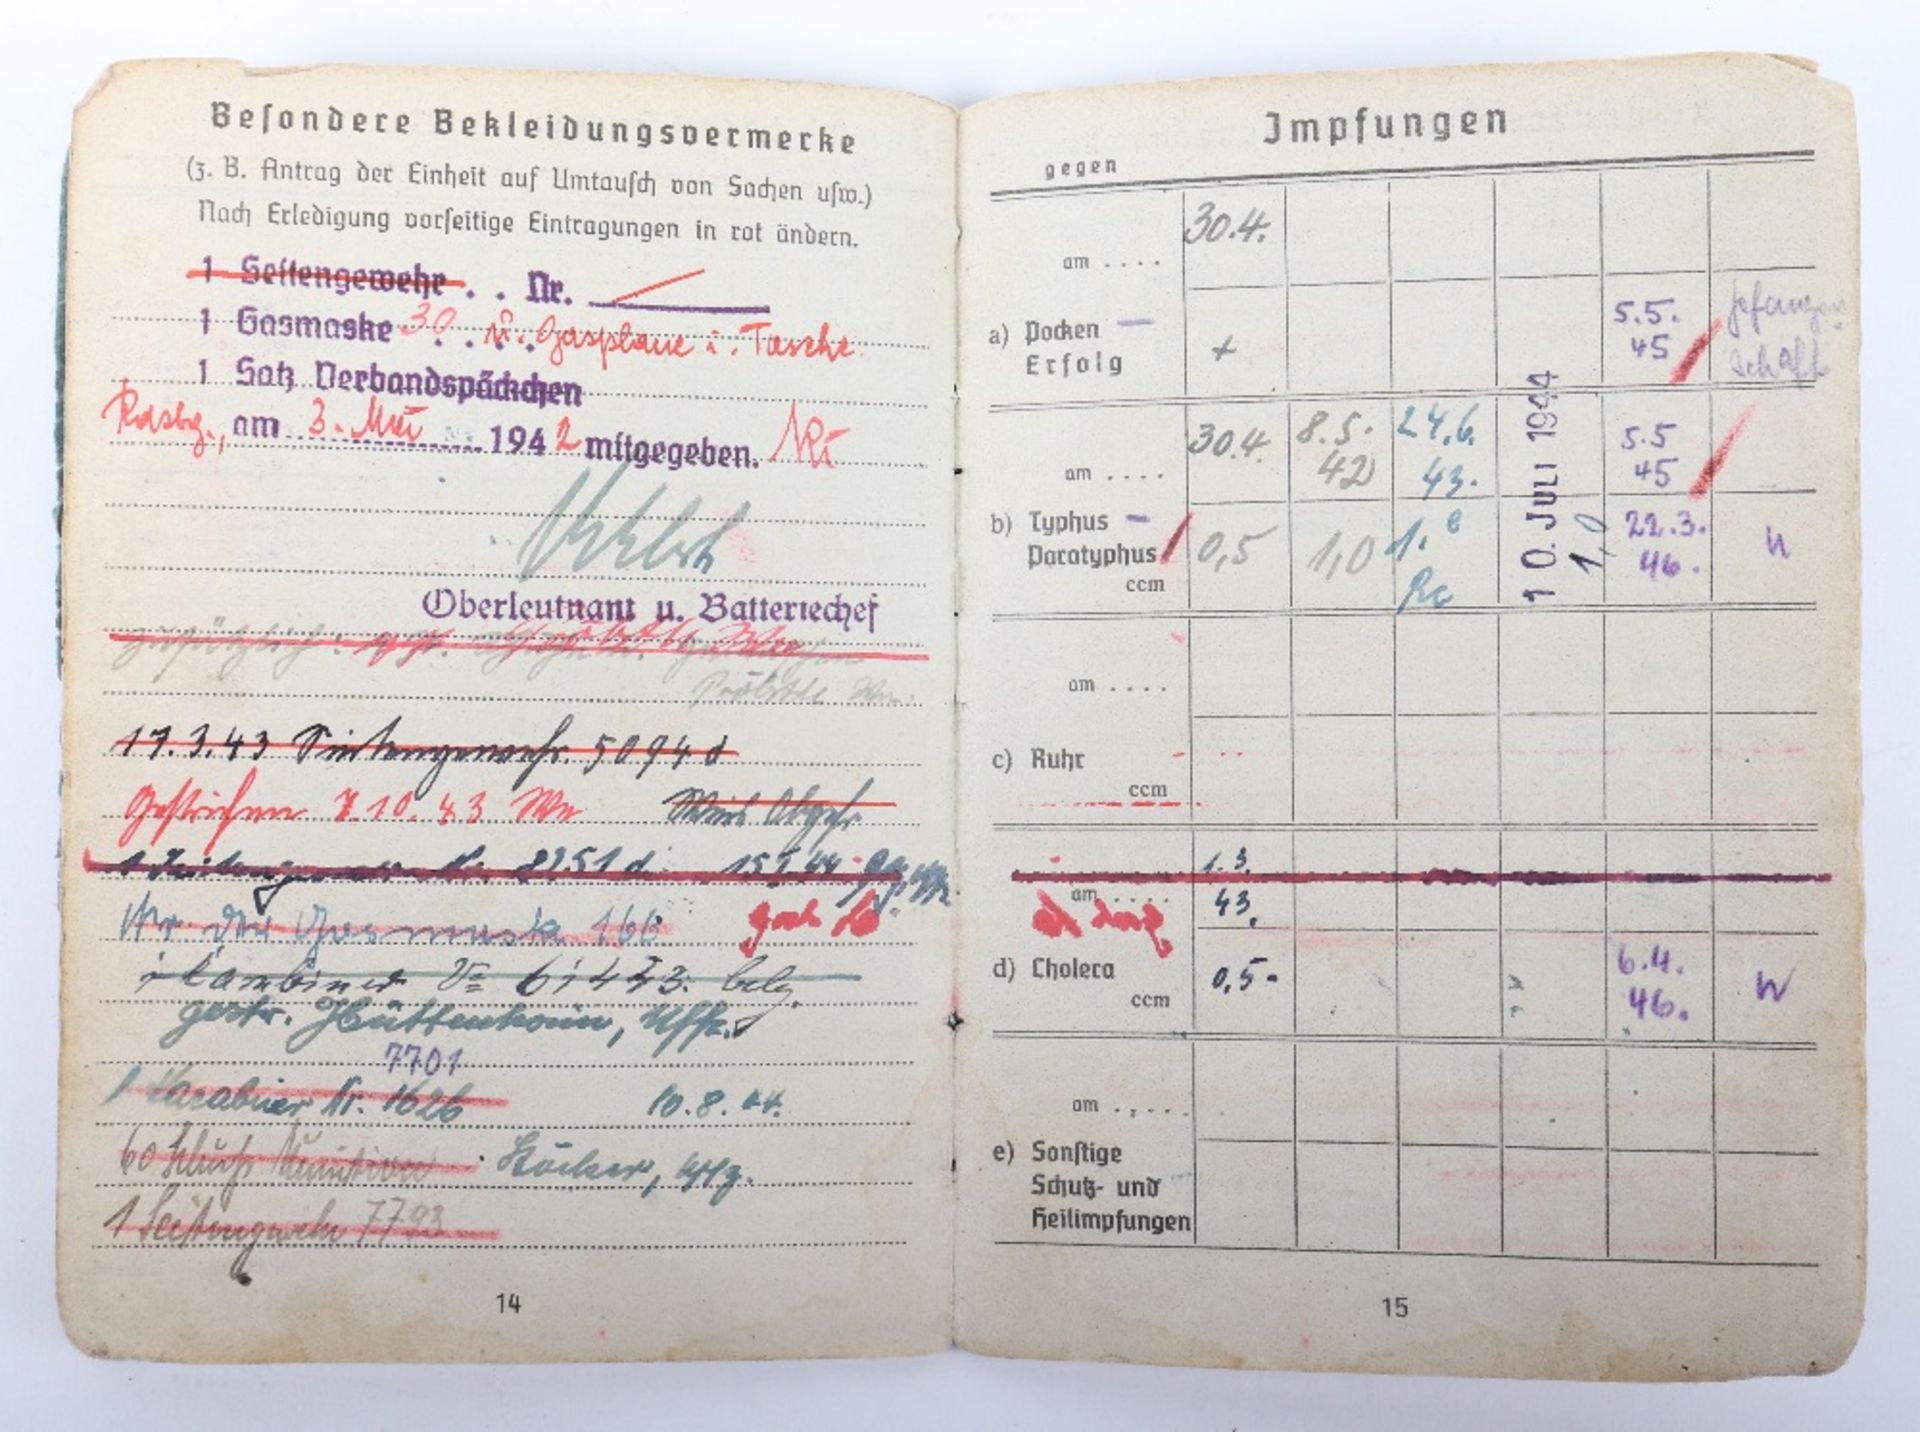 Besondere Bekleidungsvermerke
(z. B. Antrag der Einheit auf Umtausch von Sachen usw.)
Nach Erledigung vorseitige Eintragungen in rot ändern.
1 Seitengewehr . . Nr.
1 Gasmaske 30 . . . . u. Gasplane i. Tasche
1 Satz Verbandspäckchen
am 3. Mai 1942 mitgegeben.
Oberleutnant u. Batteriechef
zusätzlich:
17.3.43 Seitengewehr. 5094 d
Gestrichen 7.10.43
1 Seitengewehr Nr. 15.5.44
Nr der Gasmaske 166
1 Karabiner 61423. belg.
gestr. Uffz.
7701
1 Karabiner Nr. 1626 10.8.44.
60 Schuß Munition
1 Seitengewehr 7793
14
Impfungen
gegen
am . . . . 30.4.
a) Pocken Erfolg + 5.5. 45 Gefangen schaft
am . . . . 30.4. 8.5. 42 24.6. 43. 10. JULI 1944 5.5 45
b) Typhus Paratyphus ccm 0,5 1,0 1. 1,0 22.3. 46.
am . . . .
c) Ruhr
ccm
am . . . . 1.3. 43.
d) Cholera ccm 0,5 6.4. 46.
am . . . .
e) Sonstige
Schutz- und
Heilimpfungen
15